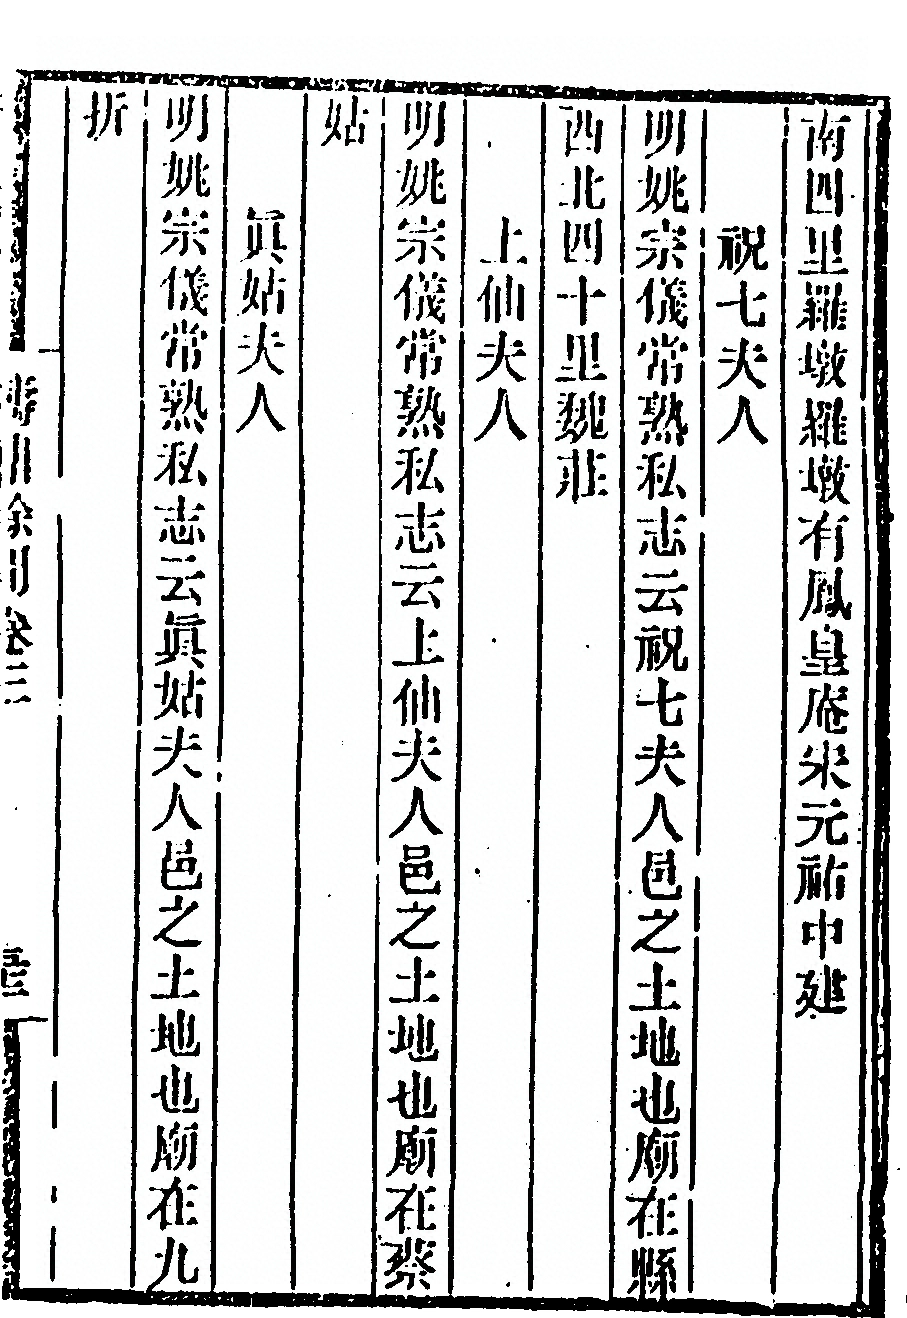 南四里羅墩羅墩有鳳皇庵宋元祐中建
祝七夫人
明姚宗儀常熟私志云祝七夫人邑之土地也廟在縣
西北四十里魏莊
上仙夫人
明姚宗儀常熟私志云上仙夫人邑之土地也廟在蔡
姑
眞姑夫人
明姚宗儀常熟私志云眞姑夫人邑之土地也廟在九
折